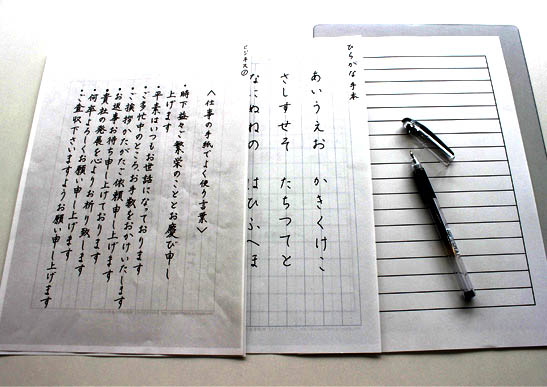 ひらがな手本
あいうえお　かきくけこ
さしすせそ　たちつてと
なにぬねの　はひふへほ
ビジネス①
〈仕事の手紙でよく使う言葉〉
・時下益々ご繁栄のこととお慶び申し
上げます
・平素はいつもお世話になっております
・ご多忙中のところお手数をおかけいたします
・ご挨拶かたがたご依頼申し上げます
・お返事お待ち申し上げております
・貴社の発展を心よりお祈り致します
・何卒よろしくお願い申し上げます
・ご査収下さいますようお願い申し上げます